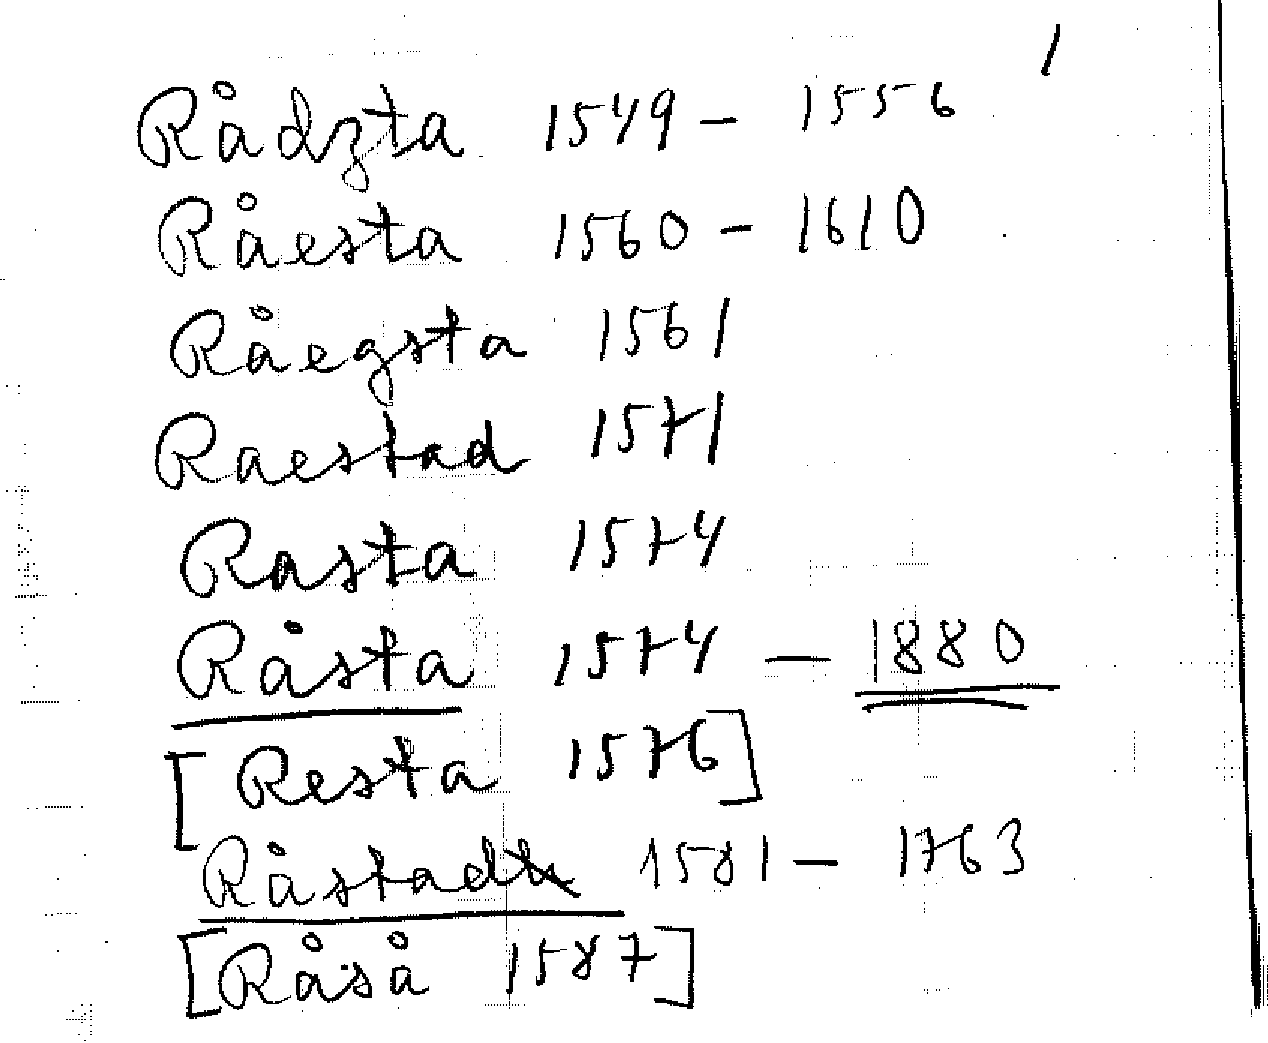 1
Rådzta 1549 - 1556
Råesta 1560 - 1610
Råegsta 1561
Raestad 1571
Rasta 1574
Råsta 1574 - 1880
[Resta 1576]
Råstad 1581 - 1763
[Råså 1587]